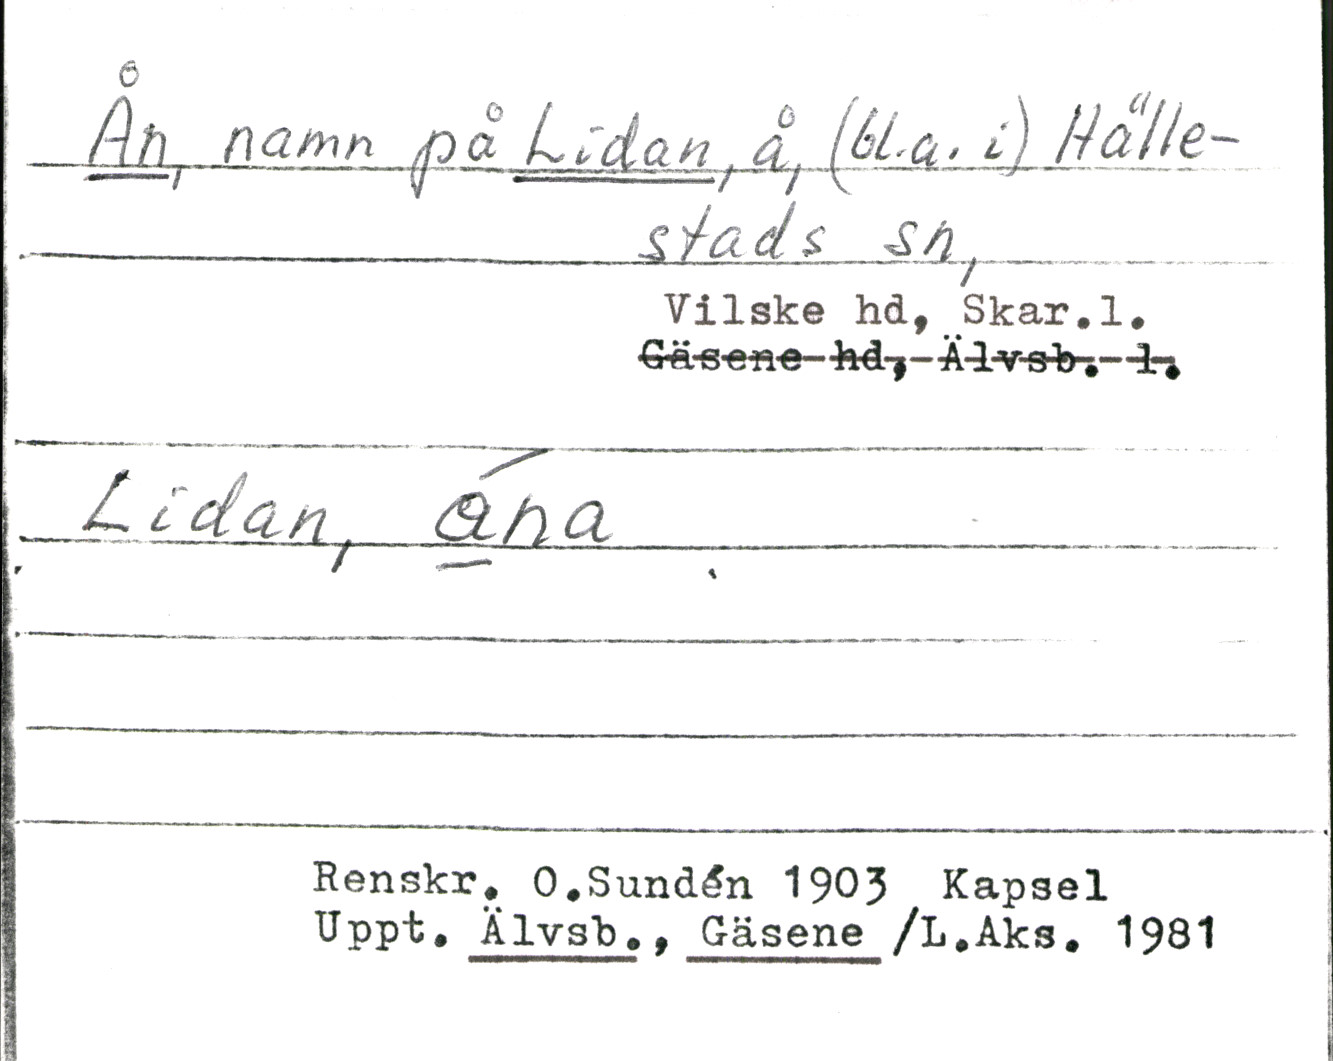 Ån, namn på Lidan, å, (bl.a. i) Hälle-
stads sn,
Vilske hd, Skar.l.
Gäsene hd, Älvsb. l.
Lidan, ána
Renskr. O.Sundén 1903 Kapsel
Uppt. Älvsb., Gäsene /L.Aks. 1981